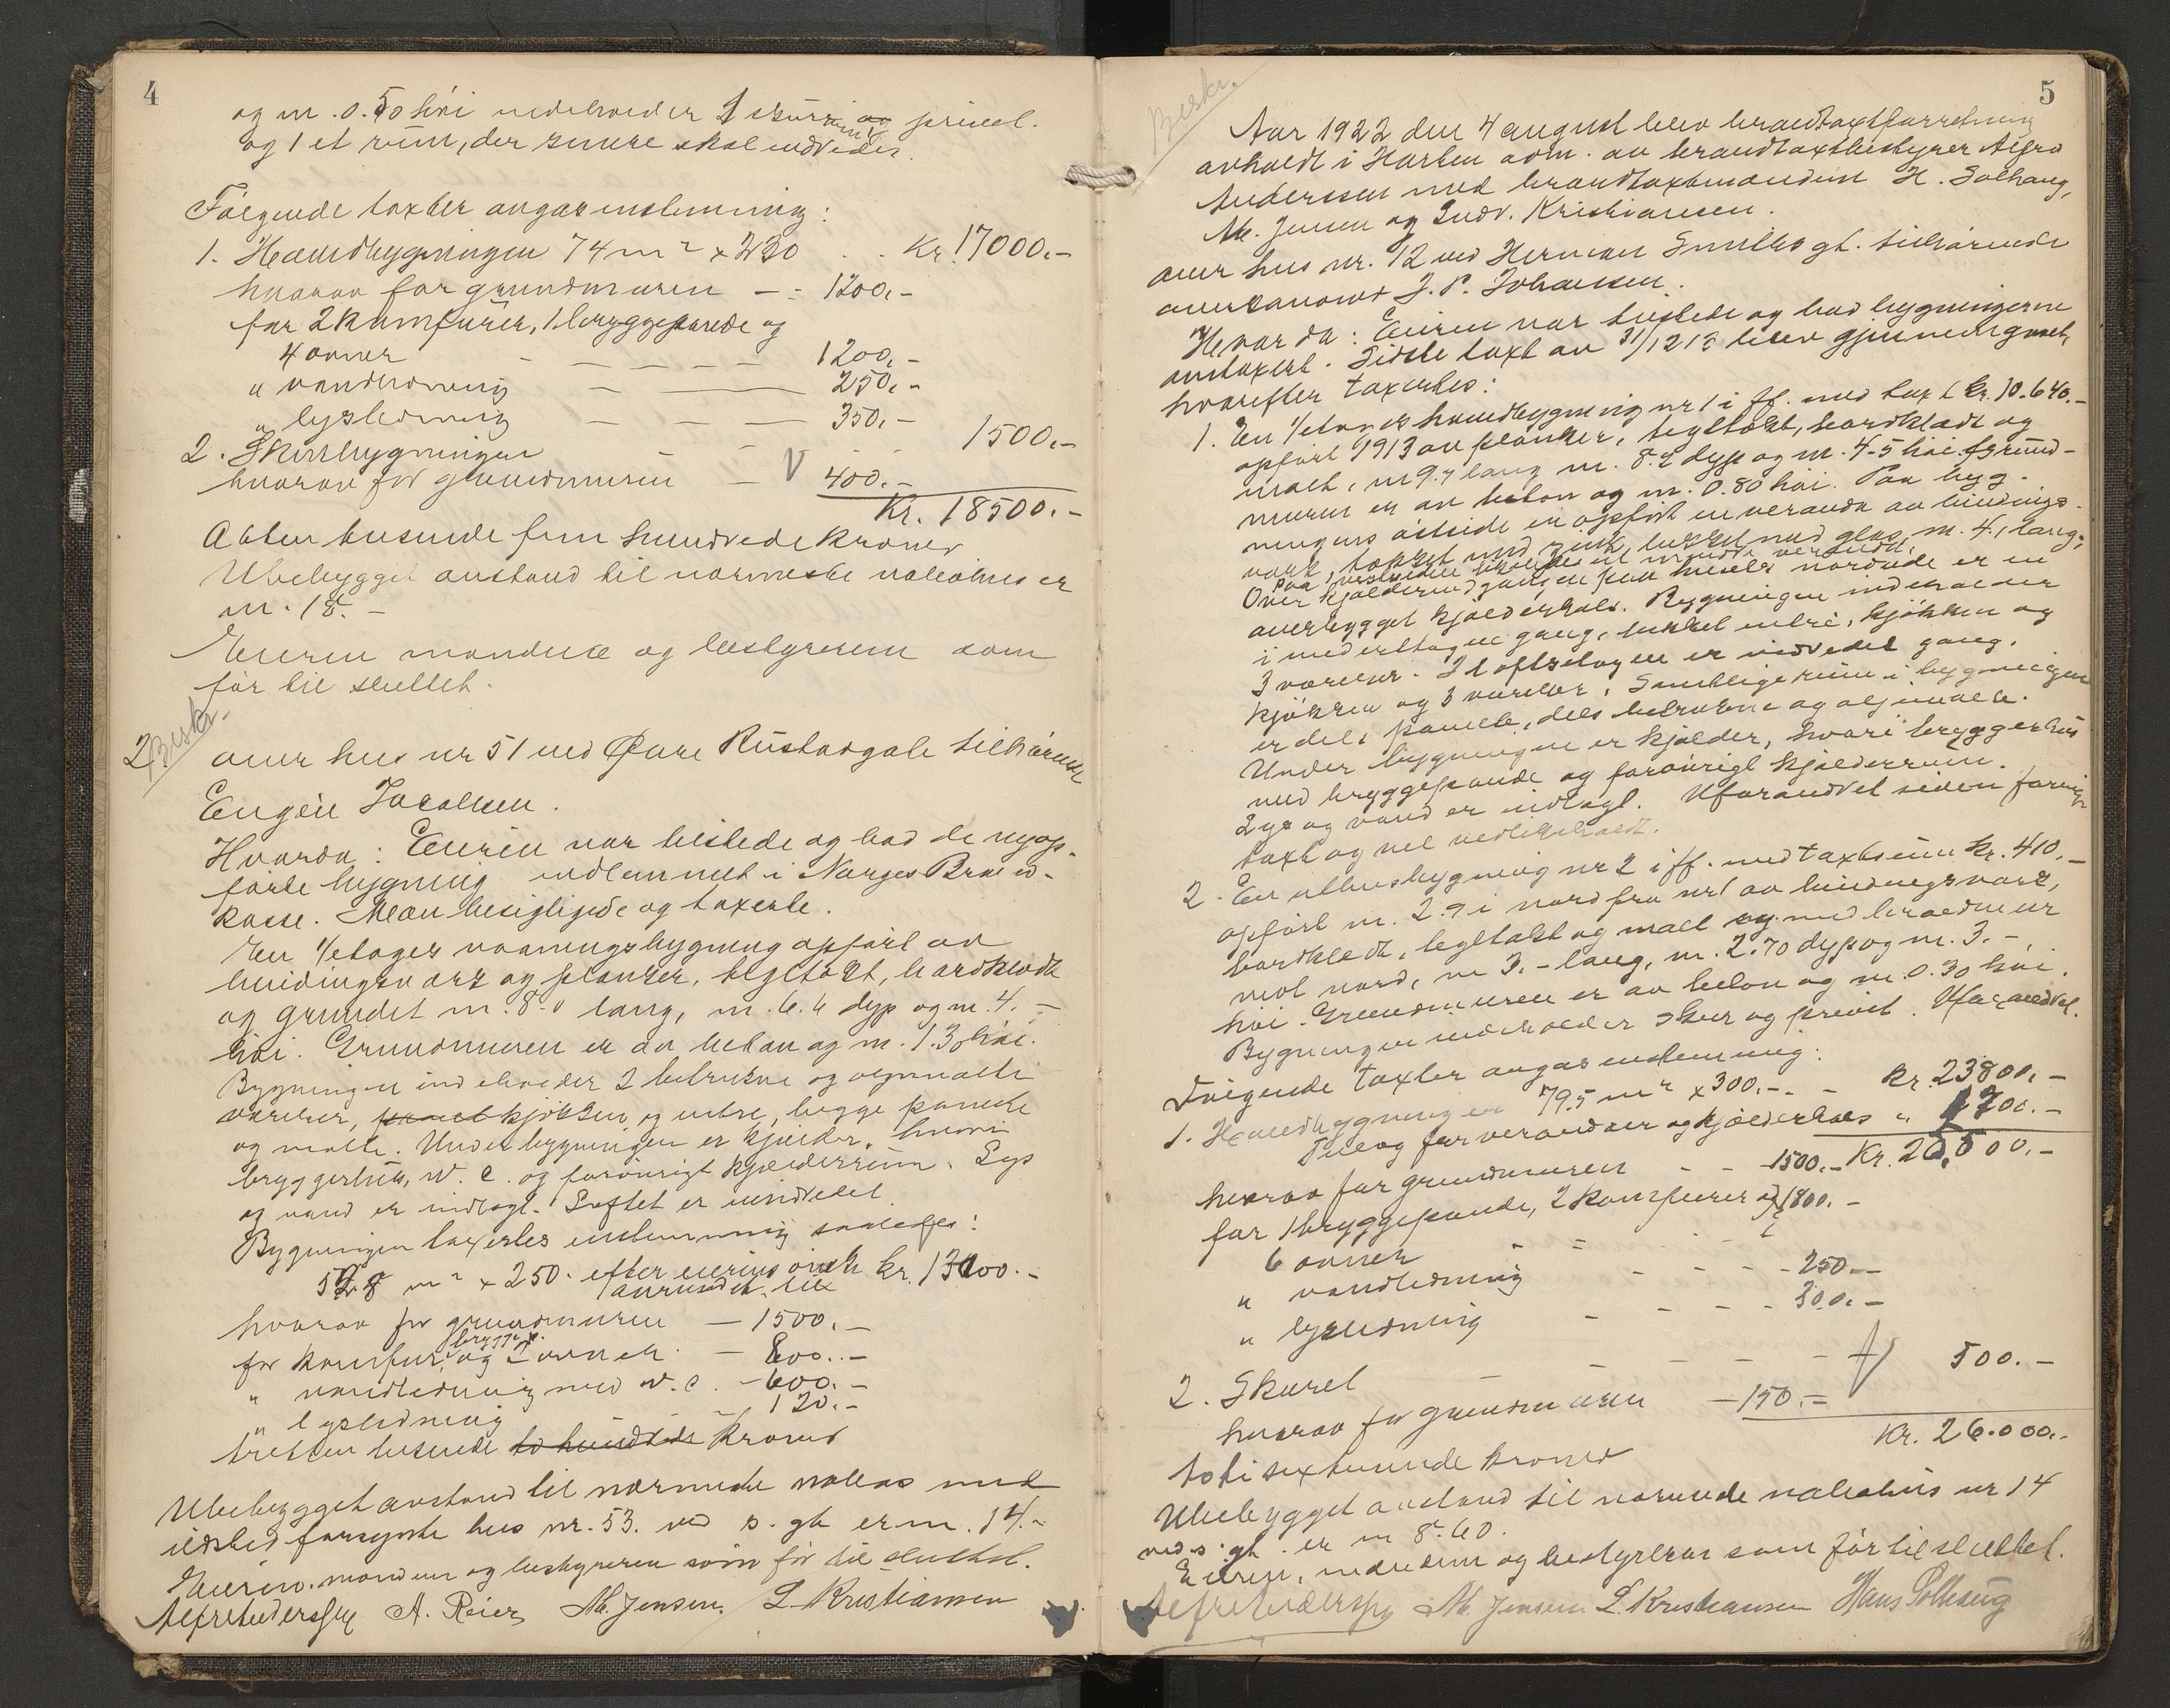 4
og m. 0.50 höi indeholder 1 skur og privet.
og 1 et rüm, der senere skal indredes.
Følgende taxter angas enstemmig:
1. Hovedbygningen 74 m² x 230 . . Kr. 17000.-
hvorav for grundmuren - - 1200.-
for 2 Komfürer, 1 bryggepande og
4 ovner - - - - 1200.-
" vandledning - - 250.-
" lysledning - - - 350.-
2. Skurbygningen - - 1500.-
hvorav for grundmüren - V 400.-
Kr. 18500.-
Atten tusinde fem hundrede Kroner
Ubebygget avstand til nærmeste nabohus er
m. 18.-
Eieren mændene og bestyreren som
før til sluttet.
Beskr.
2. over hus nr 51 ved Øvre Rüstadgate tilhørende
Eugen Jacobsen.
Hvorda: Eieren var tilstede og bad de nyop-
førte bygning indlemmet i Norges Brand-
kasse. Man besigtigede og taxerte.
En 1/etages vaaningsbygning opført av
bindingsverk og planker, tegltækt, bordklædt
og grundet m. 8.0 lang, m. 6.6 dyp og m. 4.-
höi. Grundmuren er av beton og m. 1.30 höi.
Bygningen indeholder 2 betrukne og oljemalte
værelser, kjøkken og entre, begge panelte
og malte. Under bygningen er kjælder, hvori
bryggerhüs, W. C. og forövrigt kjælderrüm. Lys
og vand er indlagt. Loftet er uindredet.
Bygningen taxertes enstemmig saaledes:
52.8 m² x 250.- efter eierens önske kr. 13000.-
avrundet til
hvorav for grundmuren - 1500.-
for komfur, bryggep. og 2 ovner - 800.-
" vandledning med W. C. - 600.-
" lysledning - 120.-
tretten tusinde to hundrede Kroner
Ubebygget avstand til nærmeste nabos med
ildsted forsynte hus nr. 53 ved s. gt. er m. 14.-
Eieren, mændene og bestyreren som før til sluttet.
Alfr Anderssen A. Reier M. Jensen L. Kristiansen
5
Beskr.
Aar 1922 den 4 august blev brandtaxtforretning
avholdt i Horten adm. av brandtaxtbestyrer Alfred
Anderssen med brandtaxtmændene H. Solhaug,
M. Jensen og Ludv. Kristiansen.
over hus nr. 12 ved Herman Smiths gt. tilhørende
overkanoner J. P. Johansen.
Hvorda: Eieren var tilstede og bad bygningerne
omtaxert. Sidste taxt av 31/12 13 blev gjennemgaaet,
hvorefter taxertes:
1. En 1/etages hovedbygning nr 1 i ff. med taxt kr. 10.640.-
opført 1913 av planker, tegltækt, bordklædt og
malt, m 9.7 lang m. 8.2 dyp og m. 4.5 höi. Grund-
muren er av beton og m. 0.80 höi. Paa byg-
ningens østside er opført en veranda av bindings-
verk, tækket med zink, lukket med glas, m. 4,1 lang;
Paa vestsiden likeledes en mindre veranda.
Over kjældernedgangen paa husets nordside er en
overbygget kjælderhals. Bygningen indeholder
i nederetagen gang, lukket entré, kjøkken og
3 værelser. I loftsetagen er indredet gang,
kjøkken og 3 værelser. Samtlige rüm i bygningen
er dels panelte, dels betrukne og oljemalte.
Under bygningen er kjælder, hvori bryggerhüs
med bryggepande og forövrigt kjælderrum.
Lys og vand er indlagt. Uforandret siden forrige
taxt og vel vedlikeholdt.
2. En uthusbygning nr 2 i ff. med taxtsum kr. 410.-
opført m. 2.9 i nord fra nr 1 av bindingsverk,
bordklædt, tegltækt og malt og med brandmur
mot nord, m 3.- lang, m. 2.70 dyp og m. 3.-
höi. Grundmuren er av beton og m. 0.30 höi.
Bygningen indeholder skur og privet. Uforandret.
Følgende taxter angas enstemmig:
1. Hovedbygningen 79.5 m² x 300.- - Kr. 23800.-
Tillæg for verandaer og kjælderhals " 1700.-
hvorav for grundmuren - - 1500.- Kr. 25,500.-
for 1 bryggepande, 2 komfurer og 1800.-
6 ovner
" vandledning - - - - 250.-
" lysledning - - - - 300.-
2. Skuret - - - - 500.-
hvorav for grundmuren - 150.-
Kr. 26.000.-
to ti sextusinde kroner
Ubebygget avstand til nærmeste nabohüs nr 14
ved s. gt. er m 8.60.
Eieren, mændene og bestyreren som før til sluttet.
Alfr Anderssen M. Jensen L. Kristiansen Hans Solhaug